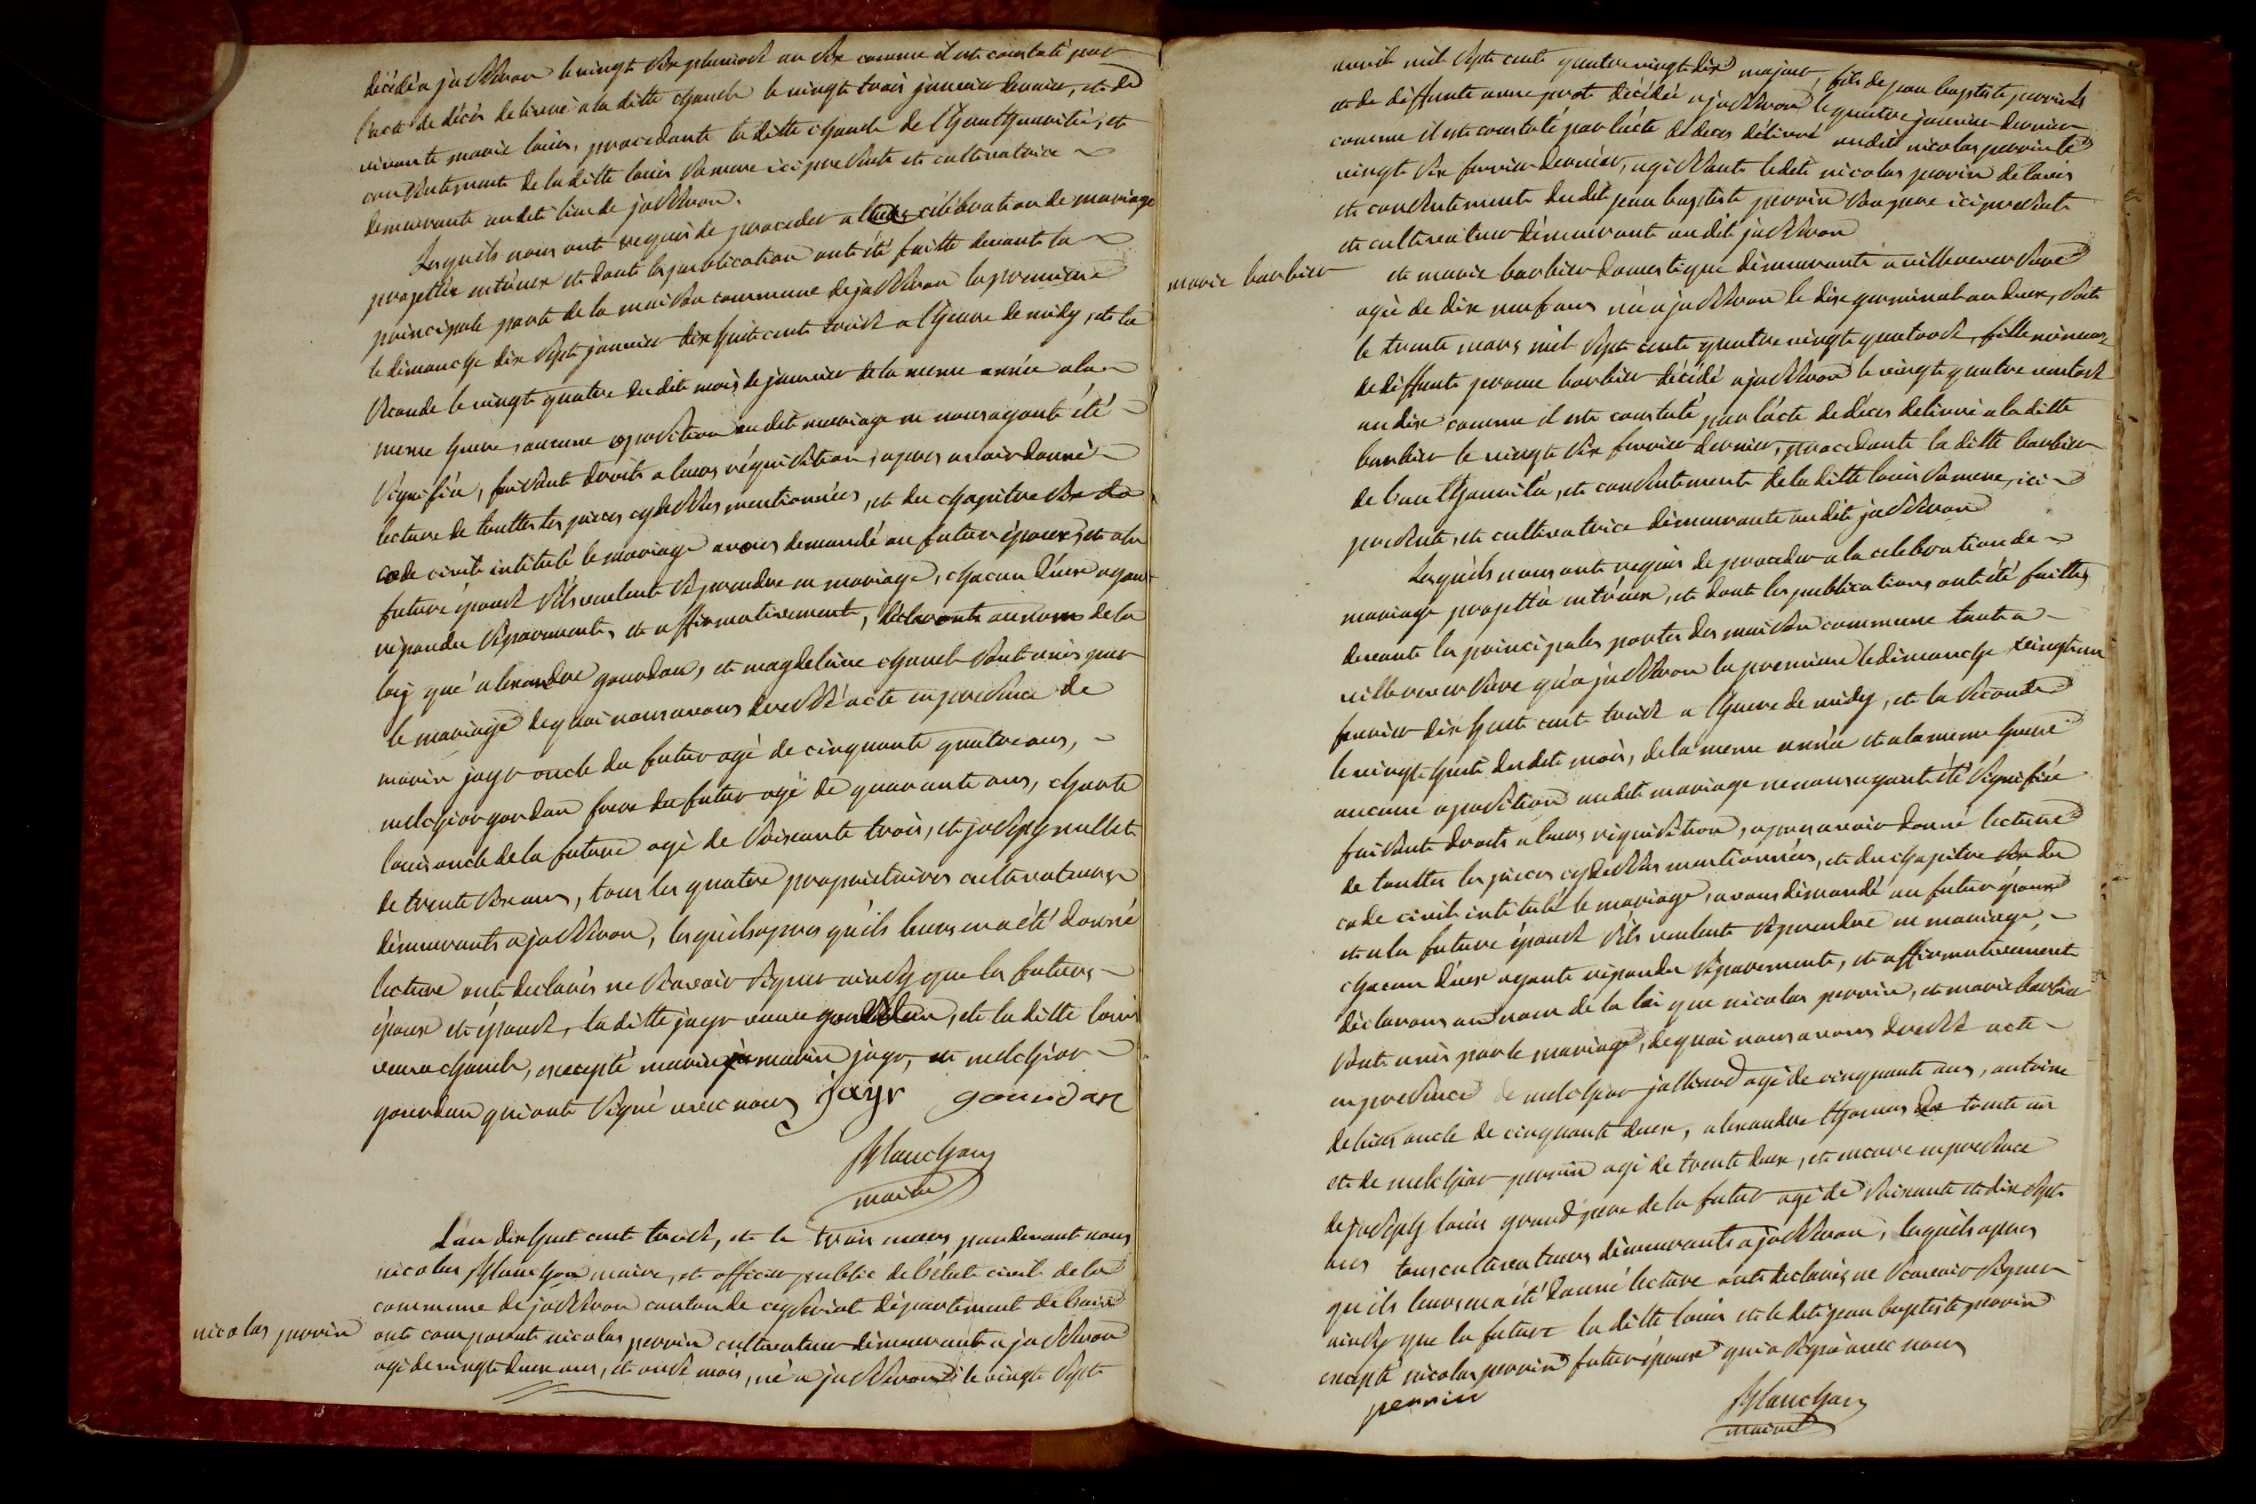 décédé a jasseron le vingt six pluviose an six comme il est constaté par
l'acte de décés delivré a la ditte chanel le vingt trois janvier dernier, et de
vivante marie louis, procedante la ditte chanel de l'hauthauritée, et
consentement de la ditte louis sa mere ici presente et cultivatrice
demeurante audit lieu de jasseron.
Lesquels nous ont requis de proceder a la célébration de mariage
projettée entreux et dont les publication ont été faitte devant la
principale porte de la maison commune de jasseron la premiere
le dimanche dix sept janvier dix huit cent treise a l'heure de midy, et la
seconde le vingt quatre dudit mois de janvier de la meme année a la
meme heure, aucune oposition audit mariage ne nous ayant été
signifiée, faisant droit a leurs réquisition, apres avoir donné
lecture de touttes les pieces cydesses mentionnées, et du chapitre six du
code civil intitulé le mariage avons demandé au futur époux, et a la
future épouse s'ils veulent se prendre en mariage, chacun d'eux ayant
répondu séparement, et affirmativement, déclarons au nom de la
loy que alexandre gourdan, et magdelaine chanel sont unis par
le mariage de quoi nous avons dressé acte en presence de
marin jayr oncle du futur agé de cinquante quatre ans,
melchior gourdan frere du futur agé de quarante ans, charle
louis oncle de la future agé de soixante trois, et joseph millet
de trente six ans, tous les quatre proprietaires cultivateurs
démeurants a jasseron, lesquels apres qu'ils leurs en a été donné
lecture ont declarés ne scavoir signer ainsy que les futurs
époux et épouse, la ditte jayr veuve gourdan, et la ditte louis
veuve chanel, excepté marin jayr, et melchior
gourdan qui ont signé avec nous jayr gourdan
Blanchon
maire
L'an dix huit cent treise, et le trois mars pardevant nous
nicolas Blanchon maire, et officier public de l'état civil de la
commune de jasseron canton de ceyseriat département de l'ain
nicolas perrin ont comparut nicolas perrin cultivateur démeurant a jasseron
agé de vingt deux ans, et onse mois, né a jasseron le vingt sept
avril mil sept cent quatre vingt dix majeur, fils de jean baptiste perrin
et de déffunte anne perot décédée a jasseron le quatre janvier dernier
comme il est constaté par l'acte de deces délivré audit nicolas perrin le
vingt six fevrier dernier, agissant ledit nicolas perrin de l'avis
et consentement dudit jean baptiste perrin son pere ici present
et cultivateur démeurant audit jasseron
marie barbier et marie barbier domestique démeurante a villereversure
agée de dix neuf ans née a jasseron le dix germinal an deux, soit
le trente mars mil sept cent quatre vingt quatorse, fille mineur
de déffunt perome barbier décédé a jasseron le vingt quatre ventose
an dix comme il est constaté par l'acte de déces delivré a la ditte
barbier le vingt six fevrier dernier, procedante la ditte barbier
de l'authaurité, et consentement de la ditte louis sa mere, ici
presente, et cultivatrice démeurante audit jasseron
Lesquels nous ont requis de proceder a la celebration de
mariage projetté entr'eux, et dont les publications ont été faittes
devant les principales portes des maison commune tant a
villereversure qu'a jasseron la premiere le dimanche vingt un
fevrier dix huit cent treise a l'heure de midy, et la seconde
le vingt huit dudit mois, de la meme année et a la meme heure
aucune oposition audit mariage ne nous ayant été signifiée
faisant droit a leurs réquisition, apres avoir donné lecture
de touttes les pieces cydesses mentionnées, et du chapitre six du
code civil intitulé le mariage, avons démandé au futur époux
et a la future épouse s'ils veulent se prendre en mariage,
chacun d'eux ayant répondu séparement, et affirmativement
déclarons au nom de la loi que nicolas perrin, et marie barbier
sont unis par le mariage, de quoi nous avons dressé acte
en presence de melchior jallioud agé de cinquante ans, antoine
debias oncle de cinquante deux, alexandre thomas de trente un
et de melchior perrin agé de trente deux, et encore en presence
de joseph louis grand pere de la futur agé de soixante et dix sept
ans tous cultivateurs démeurants a jasseron, lesquels apres
qu'ils leurs en a été donné lecture ont declarés ne scavoir signer
ainsy que la future la ditte louis et le dit jean baptiste perrin
excepté nicolas perrin futur époux qui a signé avec nous
perrin
Blanchon
maire